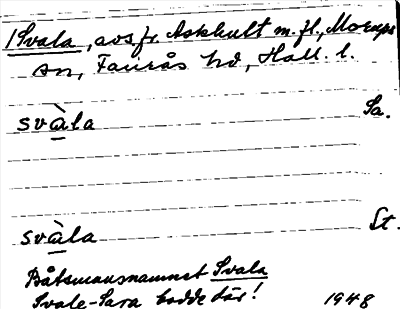 1 Svala, avs. fr. Askhult m. fl., Morups
sn, Faurås hd, Hall. l.
svàla Sa.
svàla St.
Båtsmansnamnet Svala
Svale-Sara bodde där! 1948